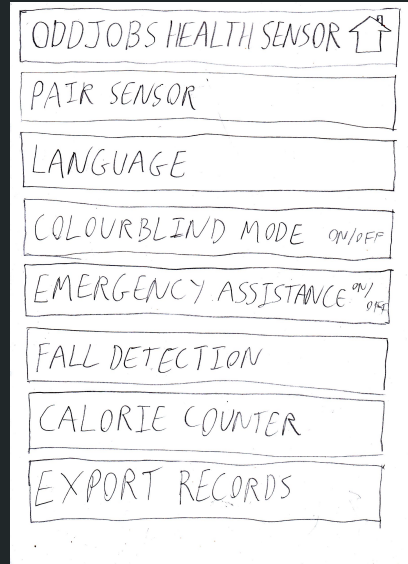 ODDJOBS HEALTH SENSOR
PAIR SENSOR
LANGUAGE
COLOURBLIND MODE ON/OFF
EMERGENCY ASSISTANCE ON/OFF
FALL DETECTION
CALORIE COUNTER
EXPORT RECORDS